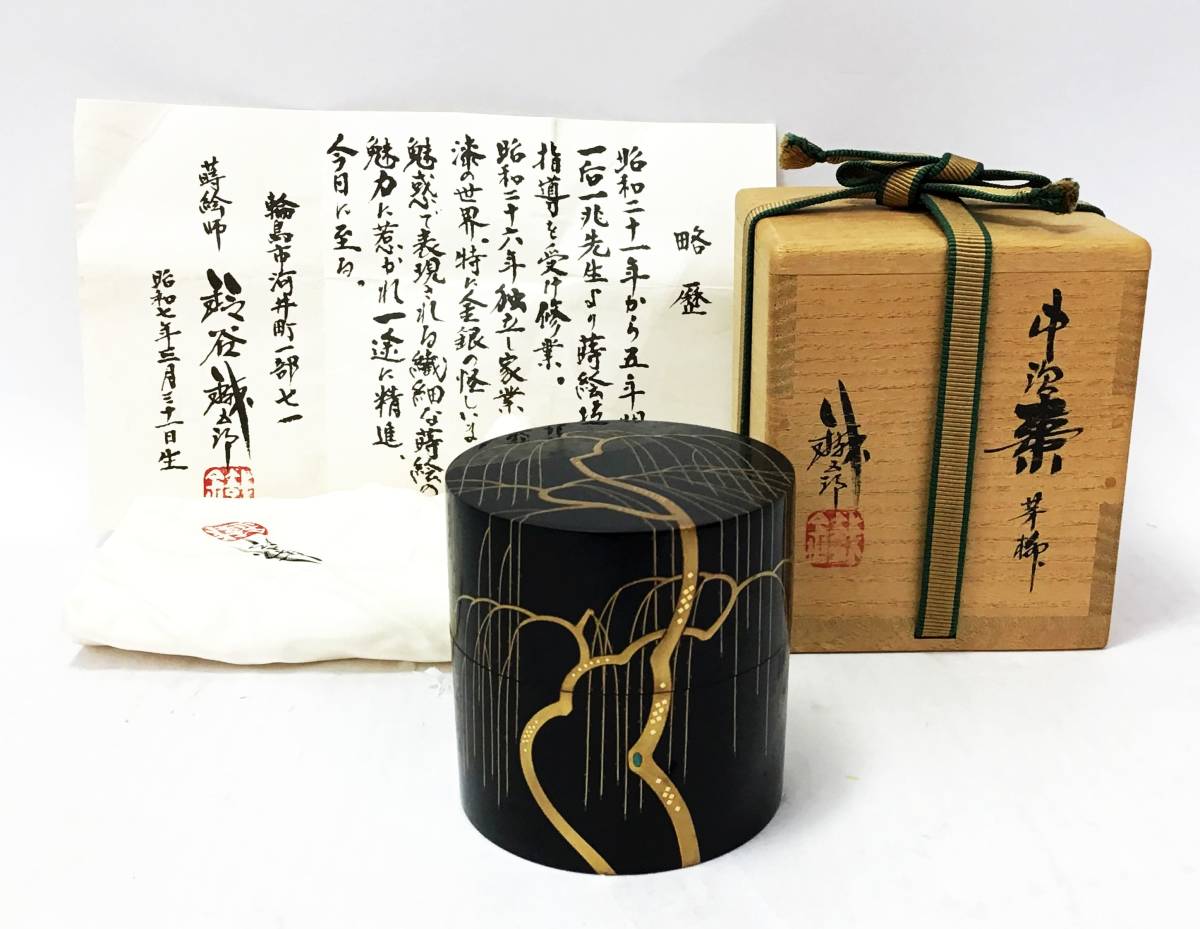 略歴
昭和二十一年から五年
一后一兆先生より蒔絵
指導を受け修業。
昭和二十六年独立し家業
漆の世界、特に金銀の怪しいま
魅惑で表現される繊細な蒔絵の
魅力に惹かれ一途に精進、
今日に至る。
輪島市河井町一部七一
蒔絵師 鈴谷 五郎
昭和七年三月三十一日生
中次棗 芽柳
五郎